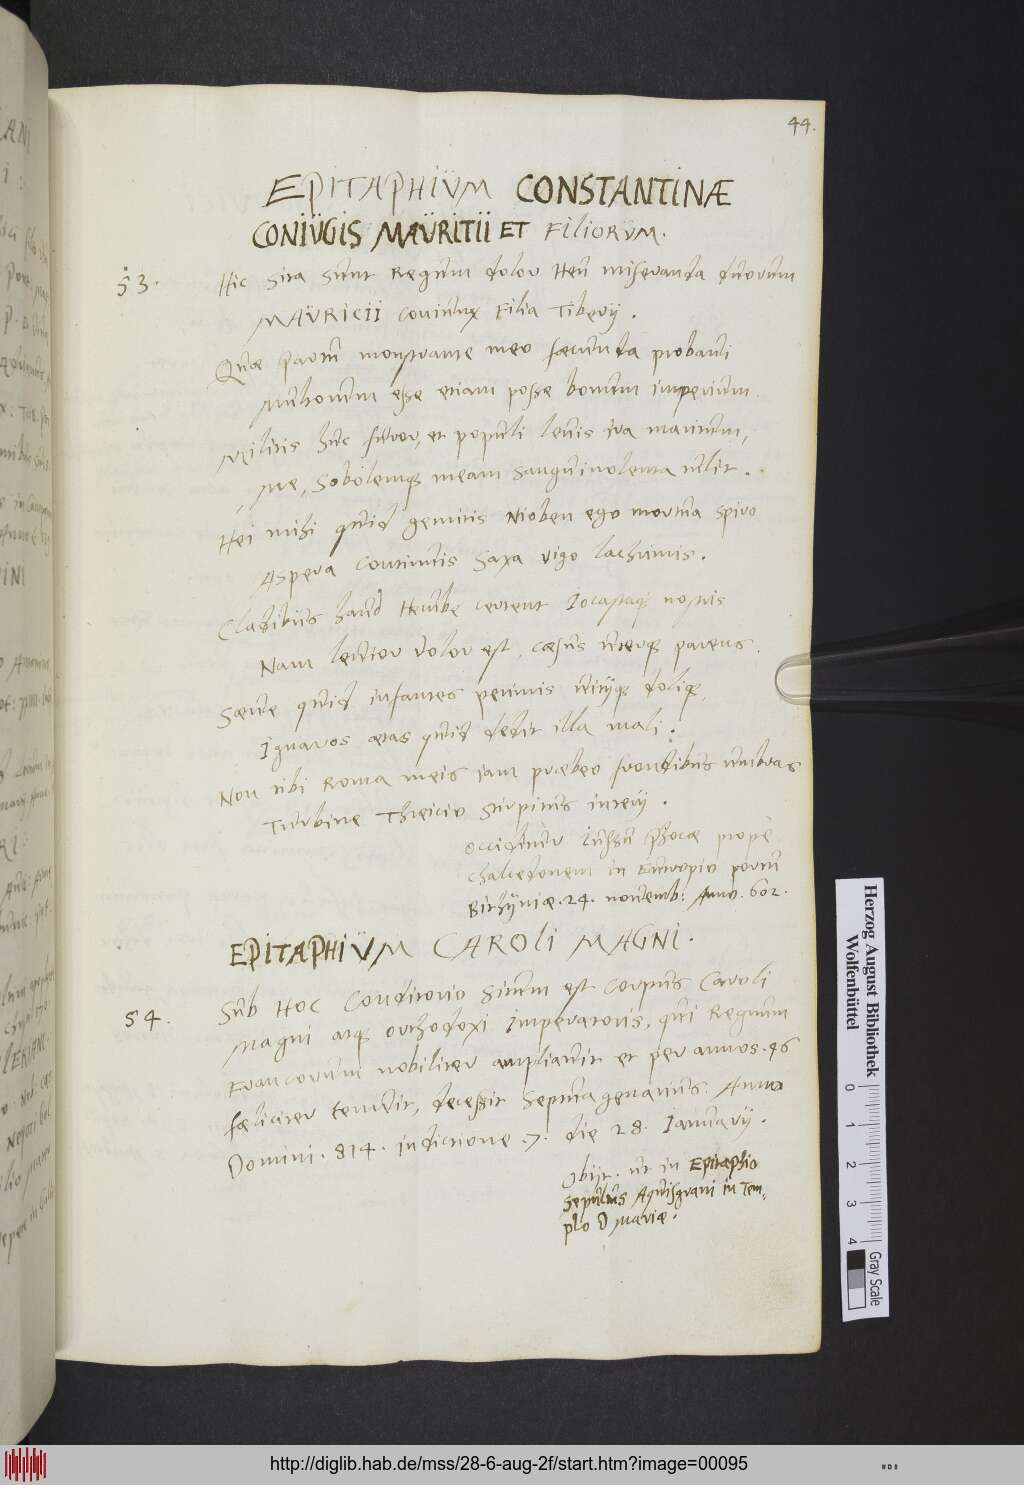 44.
EPITAPHIÜM CONSTANTINÆ
CONIÜGIS MAÜRITII ET FILIORÜM.
53. Hic sita sunt Regum dolor Heu miseranda duorum
MAÜRICII coniunx Filia Tiberij.
Quæ prauum monstrante meo fæcunda probaui
multorum esse etiam posse bonum imperium.
Militis hunc furor, et populi leuis ira maritum,
Me, Sobolemq; meam sanguinolenta tulit.
Hei mihi quid gemitis Nioben ego mortua spiro
Aspera continuis saxa rigo lachrimis.
Cladibus haud Hecube certent Iocastaq; nostris
Nam lectior dolor est, cæsus uterq; parens.
Sæue quid infantes perimis utrijq; doliq;,
Ignaros ætas quid dedit illa mali?
Non tibi Roma meis iam præbeo frondibus umbras
Turbine Threicio stirpitus interij.
Occiduntur Iussu Phocæ prope
Chalcedonem in Eutropio portu
Bithÿniæ. 24. nouemb: Anno. 602.
EPITAPHIÜM CAROLI MAGNI.
54. Sub Hoc Conditorio situm est corpus Caroli
Magni atq; orthodoxi Imperatoris, qui Regnum
Francorum nobiliter ampliauit et per annos. 46
fæliciter tenuit, decessit Septuagenarius. Anno
Domini. 814. indictione. 7. die 28. Ianuarij.
Obijt. ut in Epitaphio
Sepultus Aquisgrani in Tem,
plo D Mariæ.
Herzog August Bibliothek
Wolfenbüttel
0 1 2 3 4
Gray Scale
http://diglib.hab.de/mss/28-6-aug-2f/start.htm?image=00095